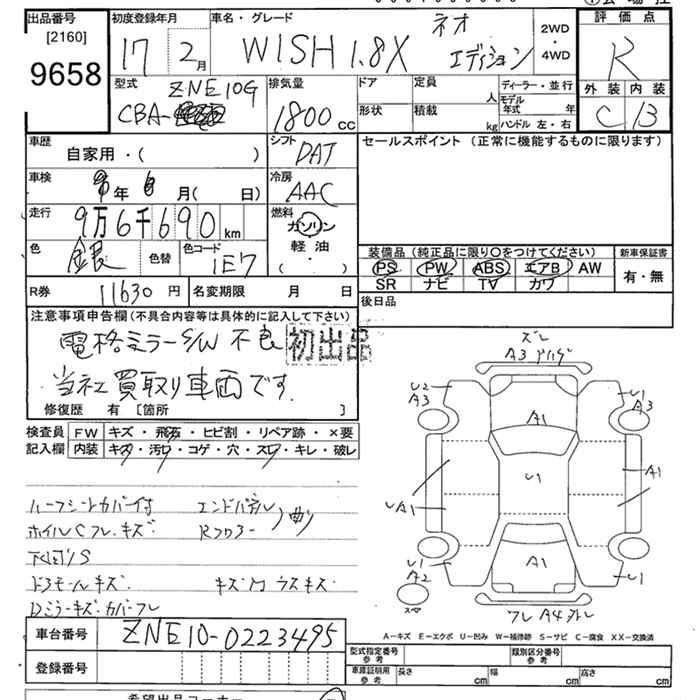 出品番号 初度登録年月 車名・グレード 評価点
[2160] 17 年 2月 WISH 1.8X ネオ エディション 2WD・4WD R
9658
型式 ZNE10G 排気量 ドア 定員 人 ディーラー・並行 外装 内装
CBA- 1800cc 形状 積載 kg モデル年式 年 ハンドル 左・右 C B
車歴 自家用・( ) シフト DAT セールスポイント (正常に機能するものに限ります)
車検 年 6月( 日) 冷房 AAC
走行 9万6千690km 燃料 ガソリン
色 銀 色替 色コード 1E7 軽油 ( ・ )
装備品 (純正品に限り○をつけてください) 新車保証書
PS PW ABS エアB AW 有・無
SR ナビ TV カワ
R券 11630円 名変期限 月 日 後日品
注意事項申告欄(不具合内容等は具体的に記入して下さい)
電格ミラーS/W 不良 初出品
当社買取り車両です.
修復歴 有 [箇所 ]
検査員 FW キズ・飛石・ヒビ割・リペア跡・×要
記入欄 内装 キズ・汚レ・コゲ・穴・スレ・キレ・破レ
ハーフシートカバー付 エンドパネル
ホイルCフレ、キズ Rフロアー 曲り
下回りS
ドアモールキズ キズ
ミラーキズ・カバーフレ
ズレ
A3
U2 A3
A1
U1 A3
UA1
U1
A1
U1 A2
A1
U1
スペ
フレ A4
A-キズ E-エクボ U-凹み W-補修跡 S-サビ C-腐食 XX-交換済
車台番号 ZNE10-0223495
登録番号
型式指定番号 参考 類別区分番号 参考
車庫証明用 参考 長さ cm 幅 cm 高さ cm
希望出品コーナー